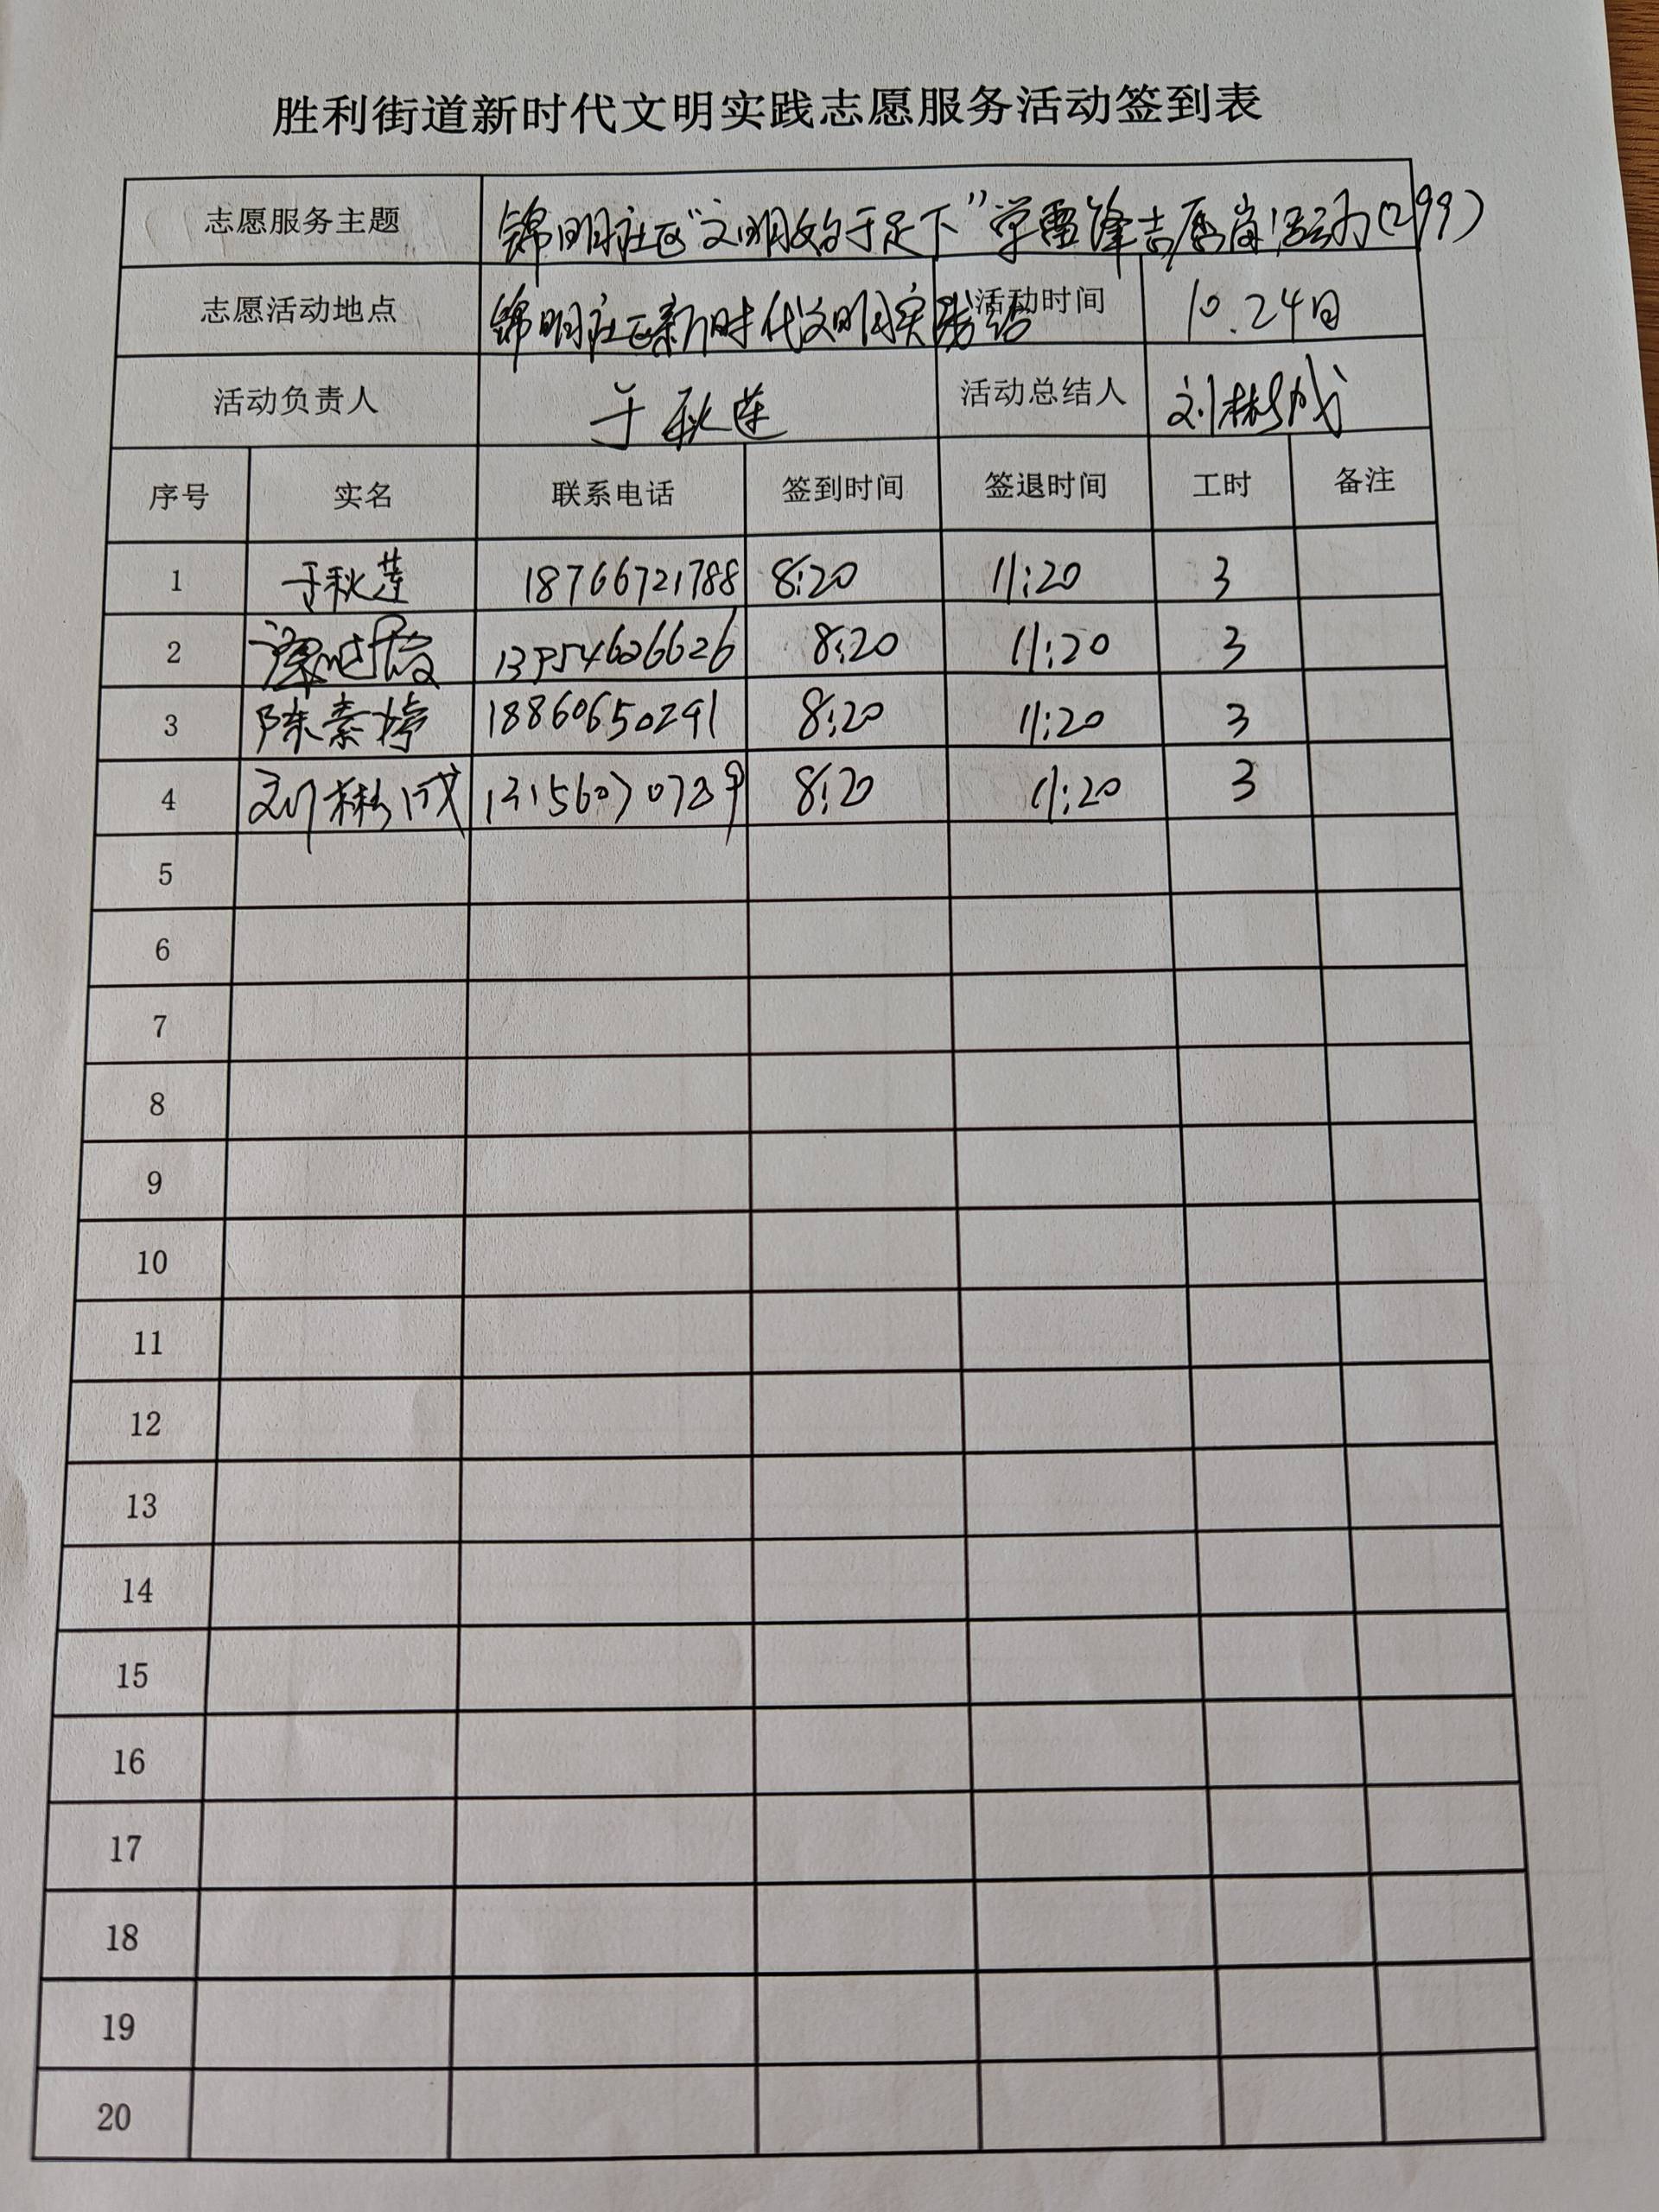 胜利街道新时代文明实践志愿服务活动签到表
志愿服务主题 锦明社区“文明始于足下”学雷锋志愿岗活动(299)
志愿活动地点 锦明社区新时代文明实践站 活动时间 10.24日
活动负责人 于秋莲 活动总结人 刘彬成
序号 实名 联系电话 签到时间 签退时间 工时 备注
1 于秋莲 18766721788 8:20 11:20 3
2 13954626626 8:20 11:20 3
3 陈素婷 18860650291 8:20 11:20 3
4 刘彬成 8:20 11:20 3
5
6
7
8
9
10
11
12
13
14
15
16
17
18
19
20